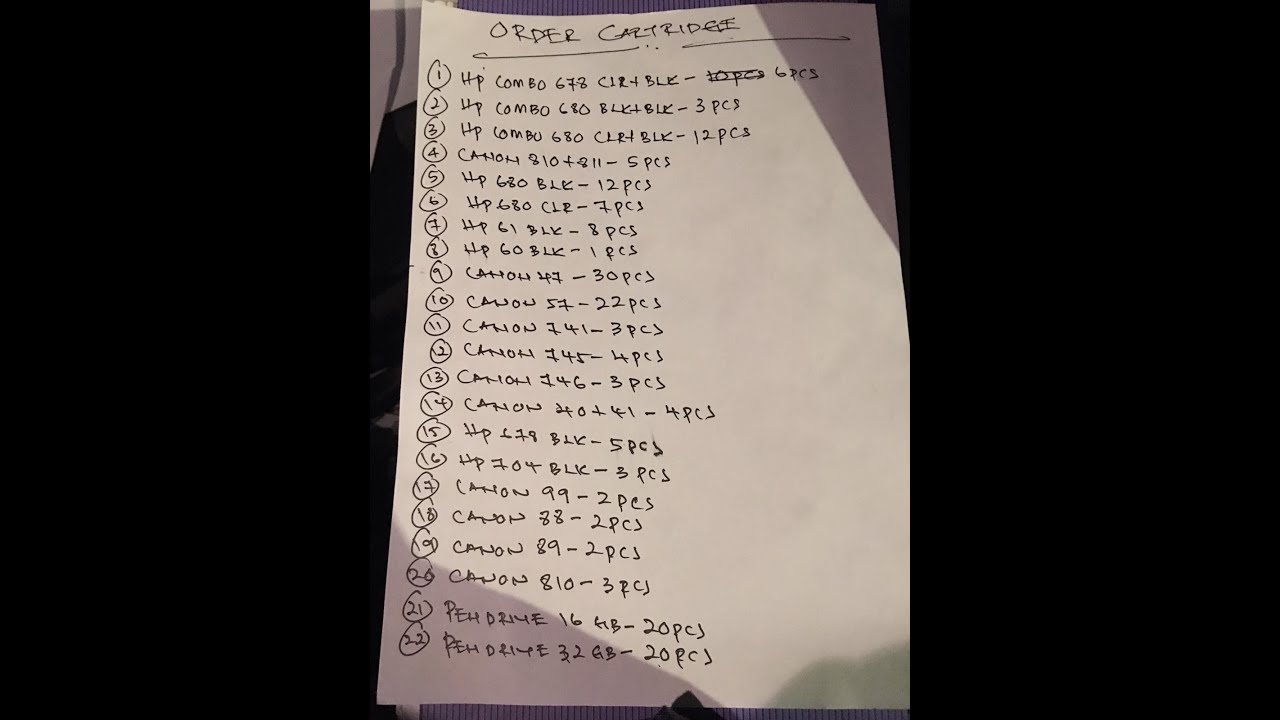 ORDER CARTRIDGE
1 HP COMBO 678 CLR+BLK - 10PCS 6PCS
2 HP COMBO 680 BLK+BLK - 3PCS
3 HP COMBO 680 CLR+BLK - 12PCS
4 CANON 810+811 - 5PCS
5 HP 680 BLK - 12PCS
6 HP 680 CLR - 7PCS
7 HP 61 BLK - 8PCS
8 HP 60 BLK - 1PCS
9 CANON 47 - 30PCS
10 CANON 57 - 22PCS
11 CANON 741 - 3PCS
12 CANON 745 - 4PCS
13 CANON 746 - 3PCS
14 CANON 40+41 - 4PCS
15 HP 678 BLK - 5PCS
16 HP 704 BLK - 3PCS
17 CANON 99 - 2PCS
18 CANON 88 - 2PCS
19 CANON 89 - 2PCS
20 CANON 810 - 3PCS
21 PENDRIVE 16 GB - 20PCS
22 PENDRIVE 32 GB - 20PCS